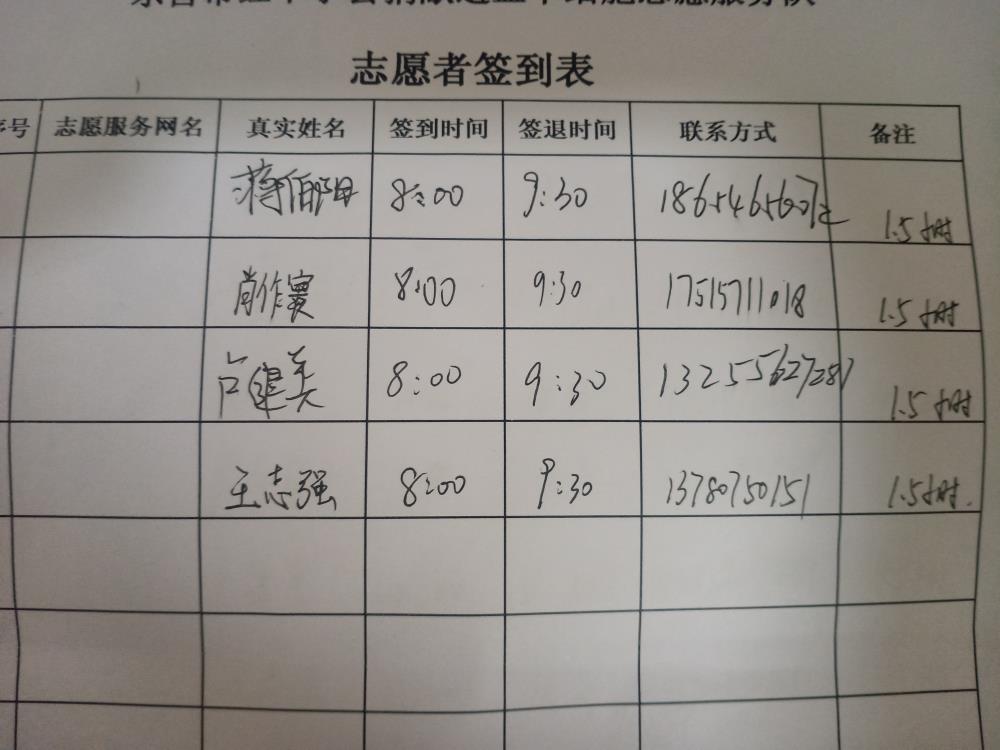 志愿者签到表
序号 志愿服务网名 真实姓名 签到时间 签退时间 联系方式 备注
蒋伯阳 8:00 9:30 1.5小时
肖作寰 8:00 9:30 17515711018 1.5小时
8:00 9:30 13255627287 1.5小时
王志强 8:00 9:30 13780750151 1.5小时